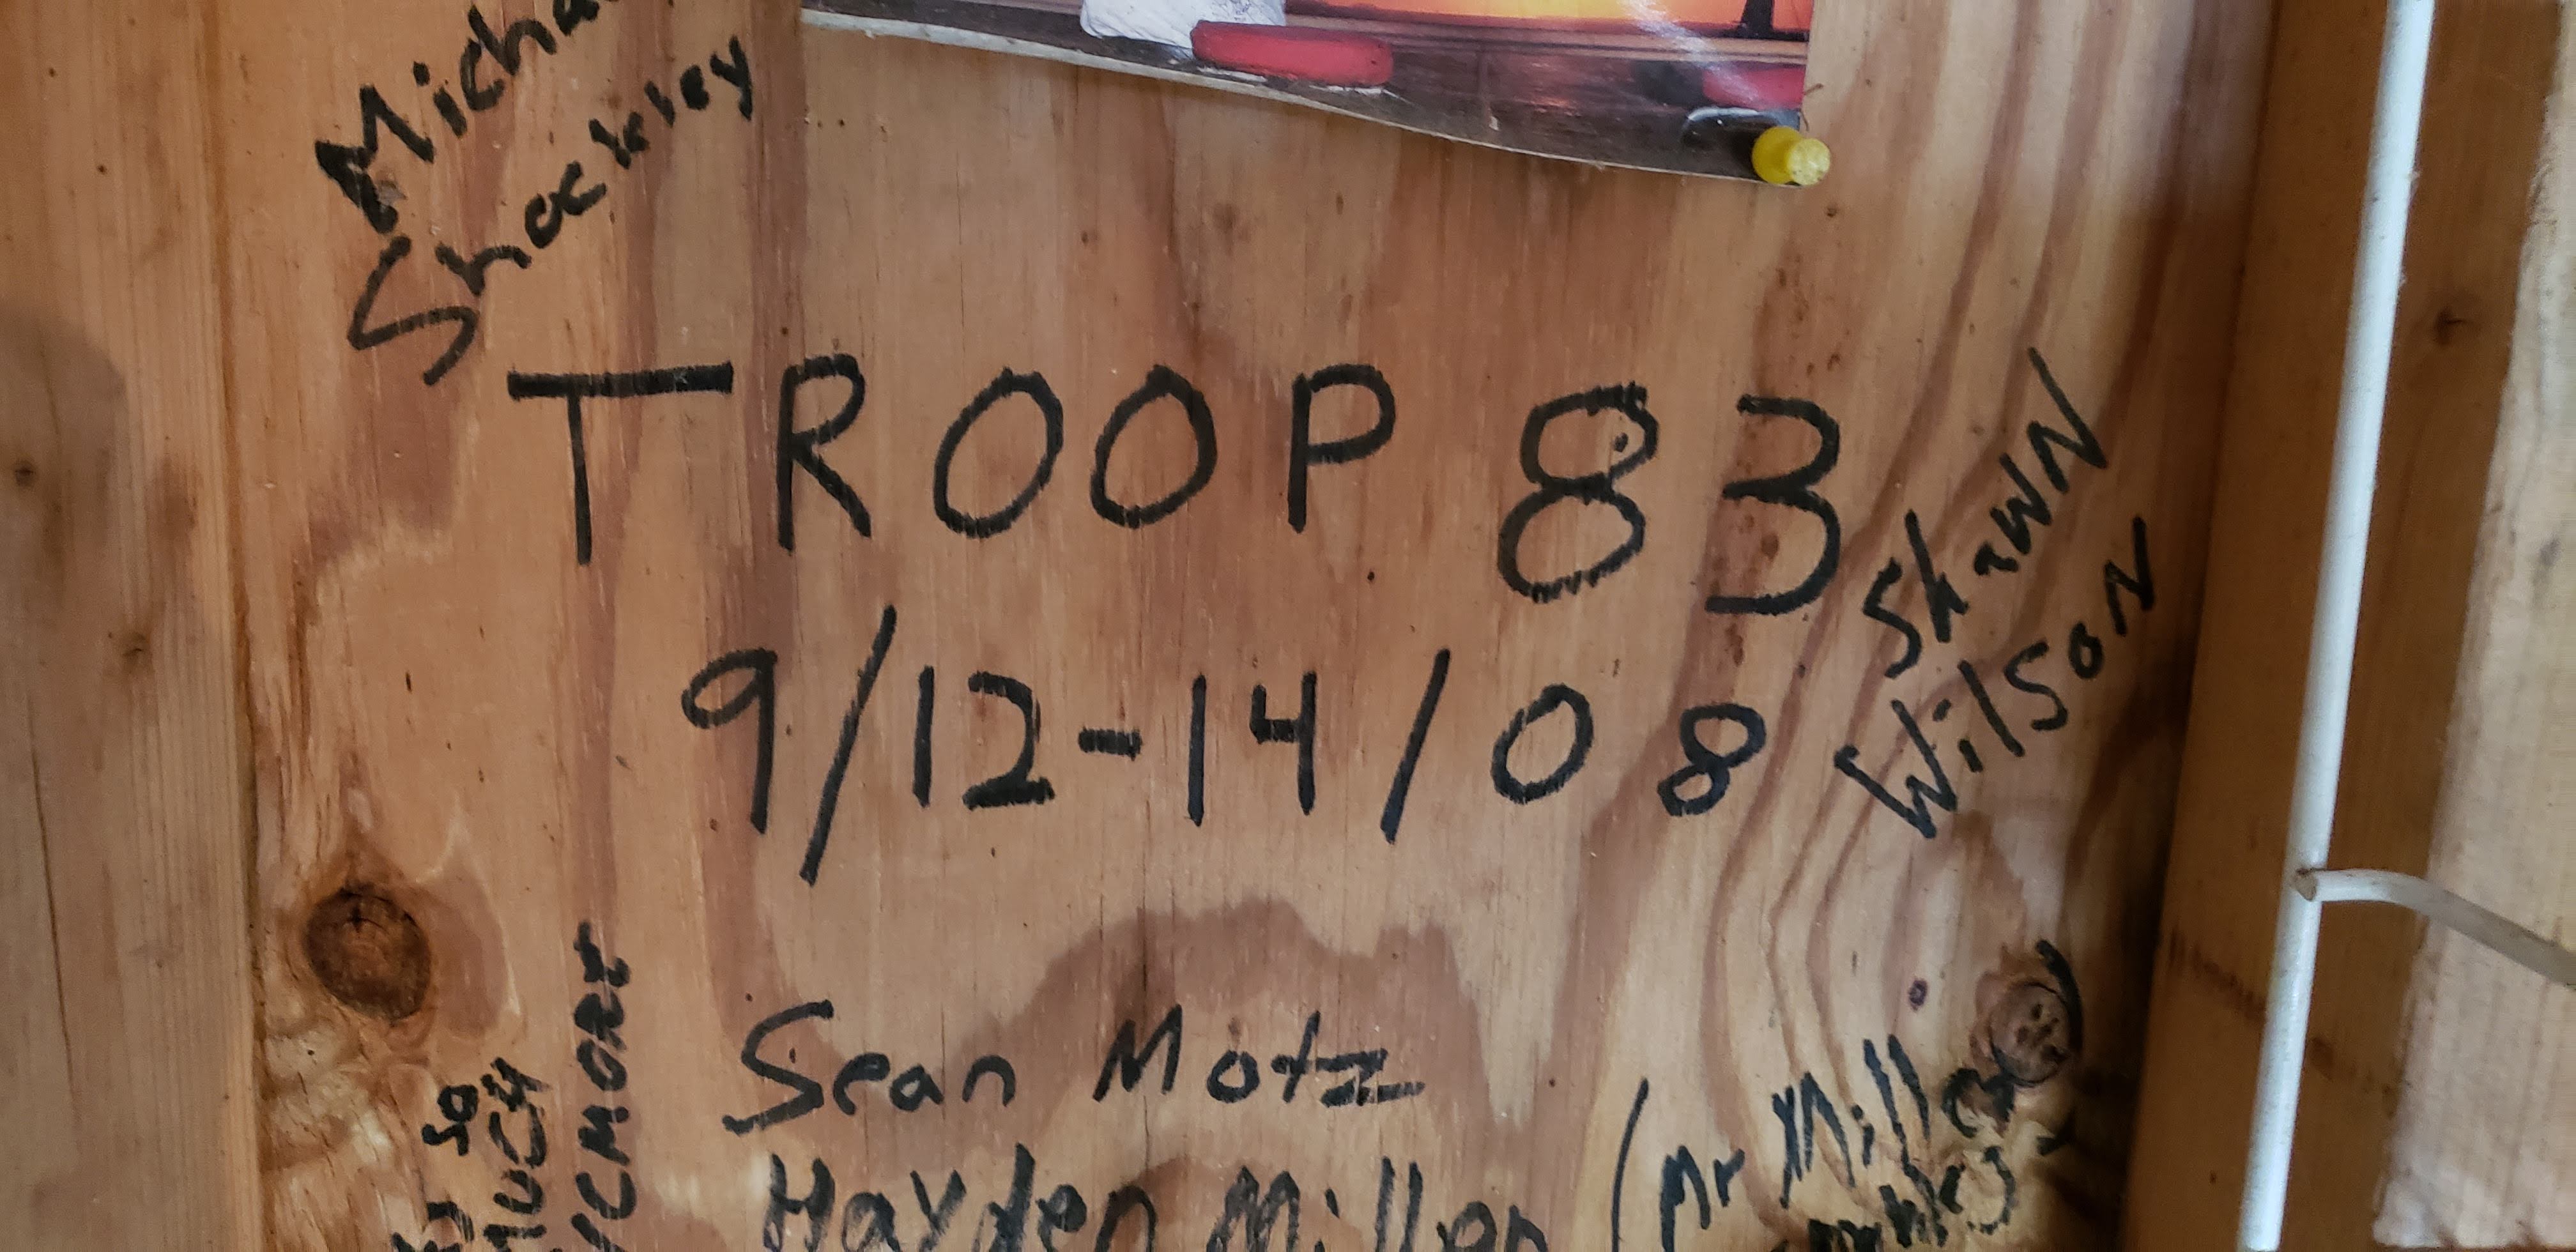 Shockley
TROOP 83
9/12-14/08
Shawn
Wilson
Sean Motz
Hayden Miller
(Mr Miller
so
MUCH